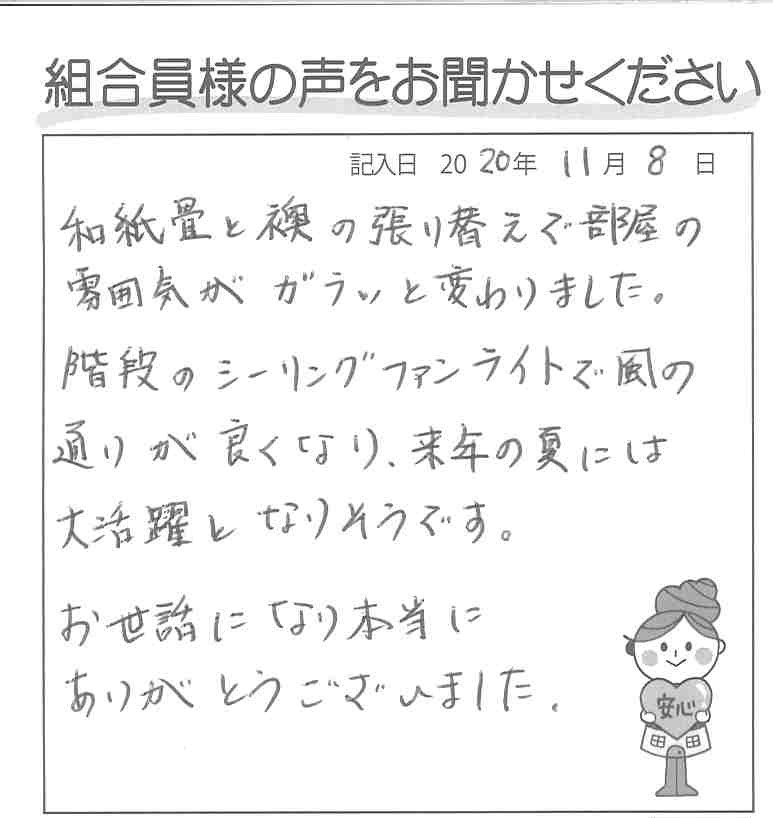 組合員様の声をお聞かせください
記入日 2020年 11月 8日
和紙畳と襖の張り替えで部屋の
雰囲気が ガラッと変わりました。
階段のシーリングファンライトで風の
通りが良くなり、来年の夏には
大活躍となりそうです。
お世話になり本当に
ありがとうございました。
安心